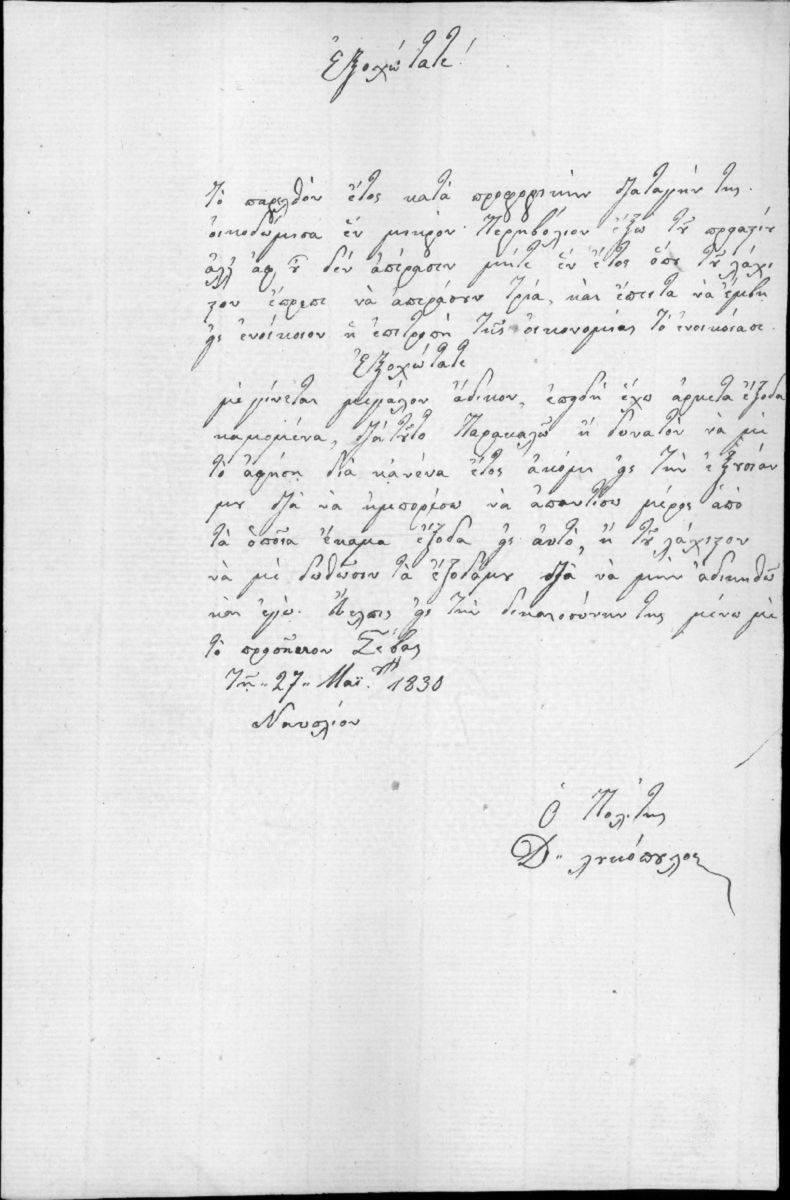 Ἐξοχώτατε!
Τὸ παρελθὸν ἔτος κατὰ προφορικὴν διαταγήν της
οἰκοδώμισα ἓν μικρὸν Περηβόλιον ἔξω τοῦ προαστίου
ἀλλ' ἀφ' οὗ δὲν ἀπέρασεν μήτε ἓν ἔτος ὅπου τοὐλάχι
στον ἔπρεπε νὰ ἀπεράσουν τρία, καὶ ἔπειτα νὰ ἔμβῃ
εἰς ἐνοίκιον ἡ ἐπιτροπὴ τῆς οἰκονομίας τὸ ἐνοικίασε.
Ἐξοχώτατε
μὲ γίνεται μεγάλον ἄδικον, ἐπειδὴ ἔχω ἀρκετὰ ἔξοδα
καμομένα, διὰ τοῦτο Παρακαλῶ ἢ δυνατὸν νὰ μὲ
τὸ ἀφήσῃ διὰ κᾀνένα ἔτος ἀκόμη εἰς τὴν ἐξουσίαν
μου διὰ νὰ ἠμπορέσω νὰ ἀπαντίσω μέρος ἀπὸ
τὰ ὁποῖα ἔκαμα ἔξοδα εἰς αὐτό, ἢ τοὐλάχιστον
νὰ μὲ δωθῶσιν τὰ ἔξοδάμου διὰ νὰ μὴν ἀδικηθῶ
καὶ ἐγώ. Εὔελπις εἰς τὴν δικαιοσύνην της μένω μὲ
τὸ προσῆκον Σέβας
τῇ 27 Μαΐου 1830
Ναυπλίον
Ὁ Πολίτης
Δ. λυκόπουλος